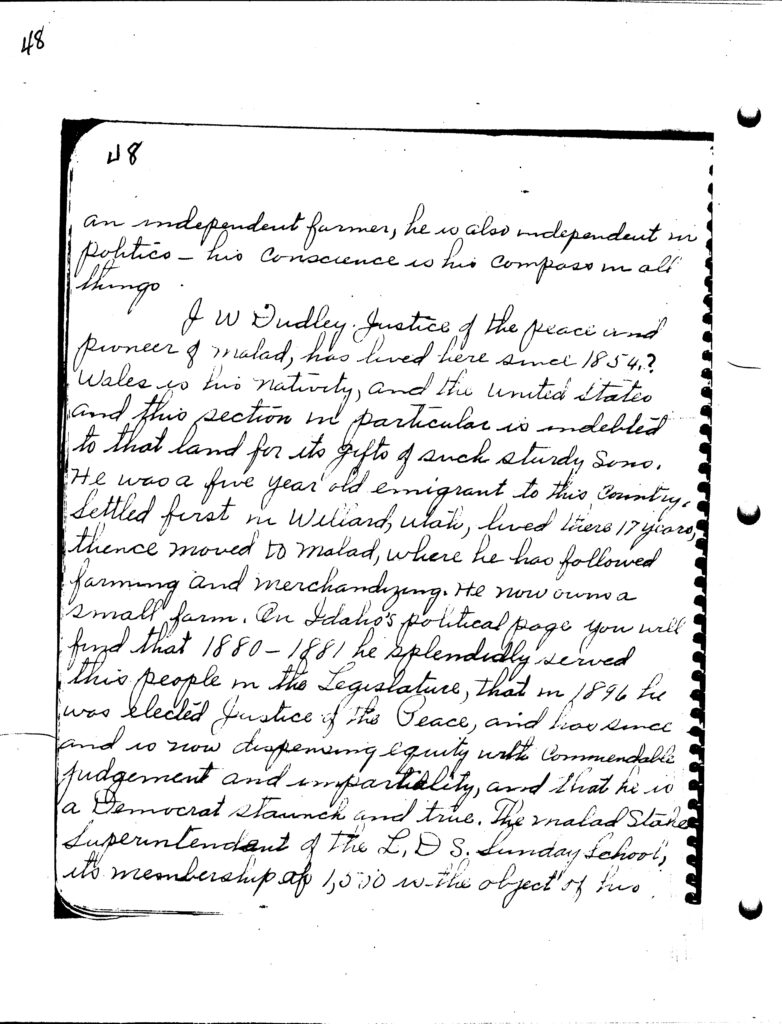 48
48
an independent farmer, he is also independent in
politics - his conscience is his compass in all
things.
J W Dudley. Justice of the peace and
pioneer of Malad, has lived here since 1854.?
Wales is his nativity, and the United States
and this section in particular is indebted
to that land for its gifts of such sturdy sons.
He was a five year old emigrant to this country,
settled first in Williard, Utah, lived there 17 years,
thence moved to Malad, where he has followed
farming and merchandizing. He now owns a
small farm. On Idaho's political page you will
find that 1880 - 1881 he splendidly served
this people in the Legislature, that in 1896 he
was elected Justice of the Peace, and has since
and is now dispensing equity with commendable
judgement and impartiality, and that he is
a Democrat staunch and true. The Malad Stake
Superintendant of the L, D S. Sunday School,
it's membership of 1,500 is the object of his